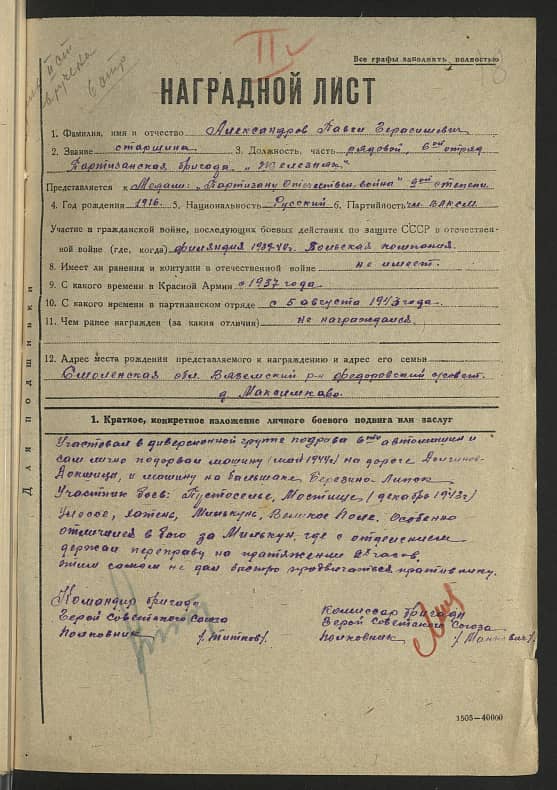 II
Все графы заполнять полностью
вручена
6 отр
НАГРАДНОЙ ЛИСТ
1. Фамилия, имя и отчество Александров Павел Герасимович
2. Звание старшина 3. Должность, часть рядовой, 6ой отряд
Партизанская бригада "Железняк"
Представляется к Медали: "Партизану Отечествен. война" 2ой степени
4. Год рождения 1916. 5. Национальность Русский 6. Партийность чл. ВЛКСМ
Участие в гражданской войне, последующих боевых действиях по защите СССР в отечествен-
ной войне (где, когда) финляндия 1939-40г. Польская компания.
8. Имеет ли ранения и контузии в отечественной войне не имеет.
9. С какого времени в Красной Армии с 1937 года
10. С какого времени в партизанском отряде с 5 августа 1943 года.
11. Чем ранее награжден (за какия отличия) не награждался.
12. Адрес места рождения представляемого к награждению и адрес его семьи
Смоленская обл. Вяземский р-н Федоровский с/совет
д. Максимково.
Для подшивки
1. Краткое, конкретное изложение личного боевого подвига или заслуг
Участвовал в диверсионной группе подрыва 6ти автомашин и
сам лично подорвал машину (май 1944г) на дороге Долгиново-
Докшицы, и машину на большаке Березино-Липск
Участник боев: Пустоселье, Мостище (декабрь 1943г)
Хатень, Милькунь, Великое Поле. Особенно
отличился в бою за Милькун, где с отделением
держал переправу на протяжении 2х часов,
этим самым не дал быстро продвигаться противнику.
Командир бригады
Герой Советского Союза
полковник /Титков/.
Комиссар бригады
Герой Советского Союза
полковник /Манкович/.
1505—40000